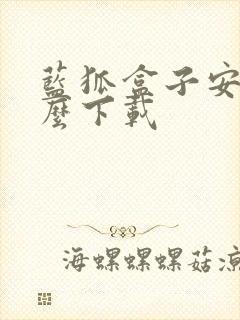 藍狐盒子安
麼下載
海螺螺螺菇涼